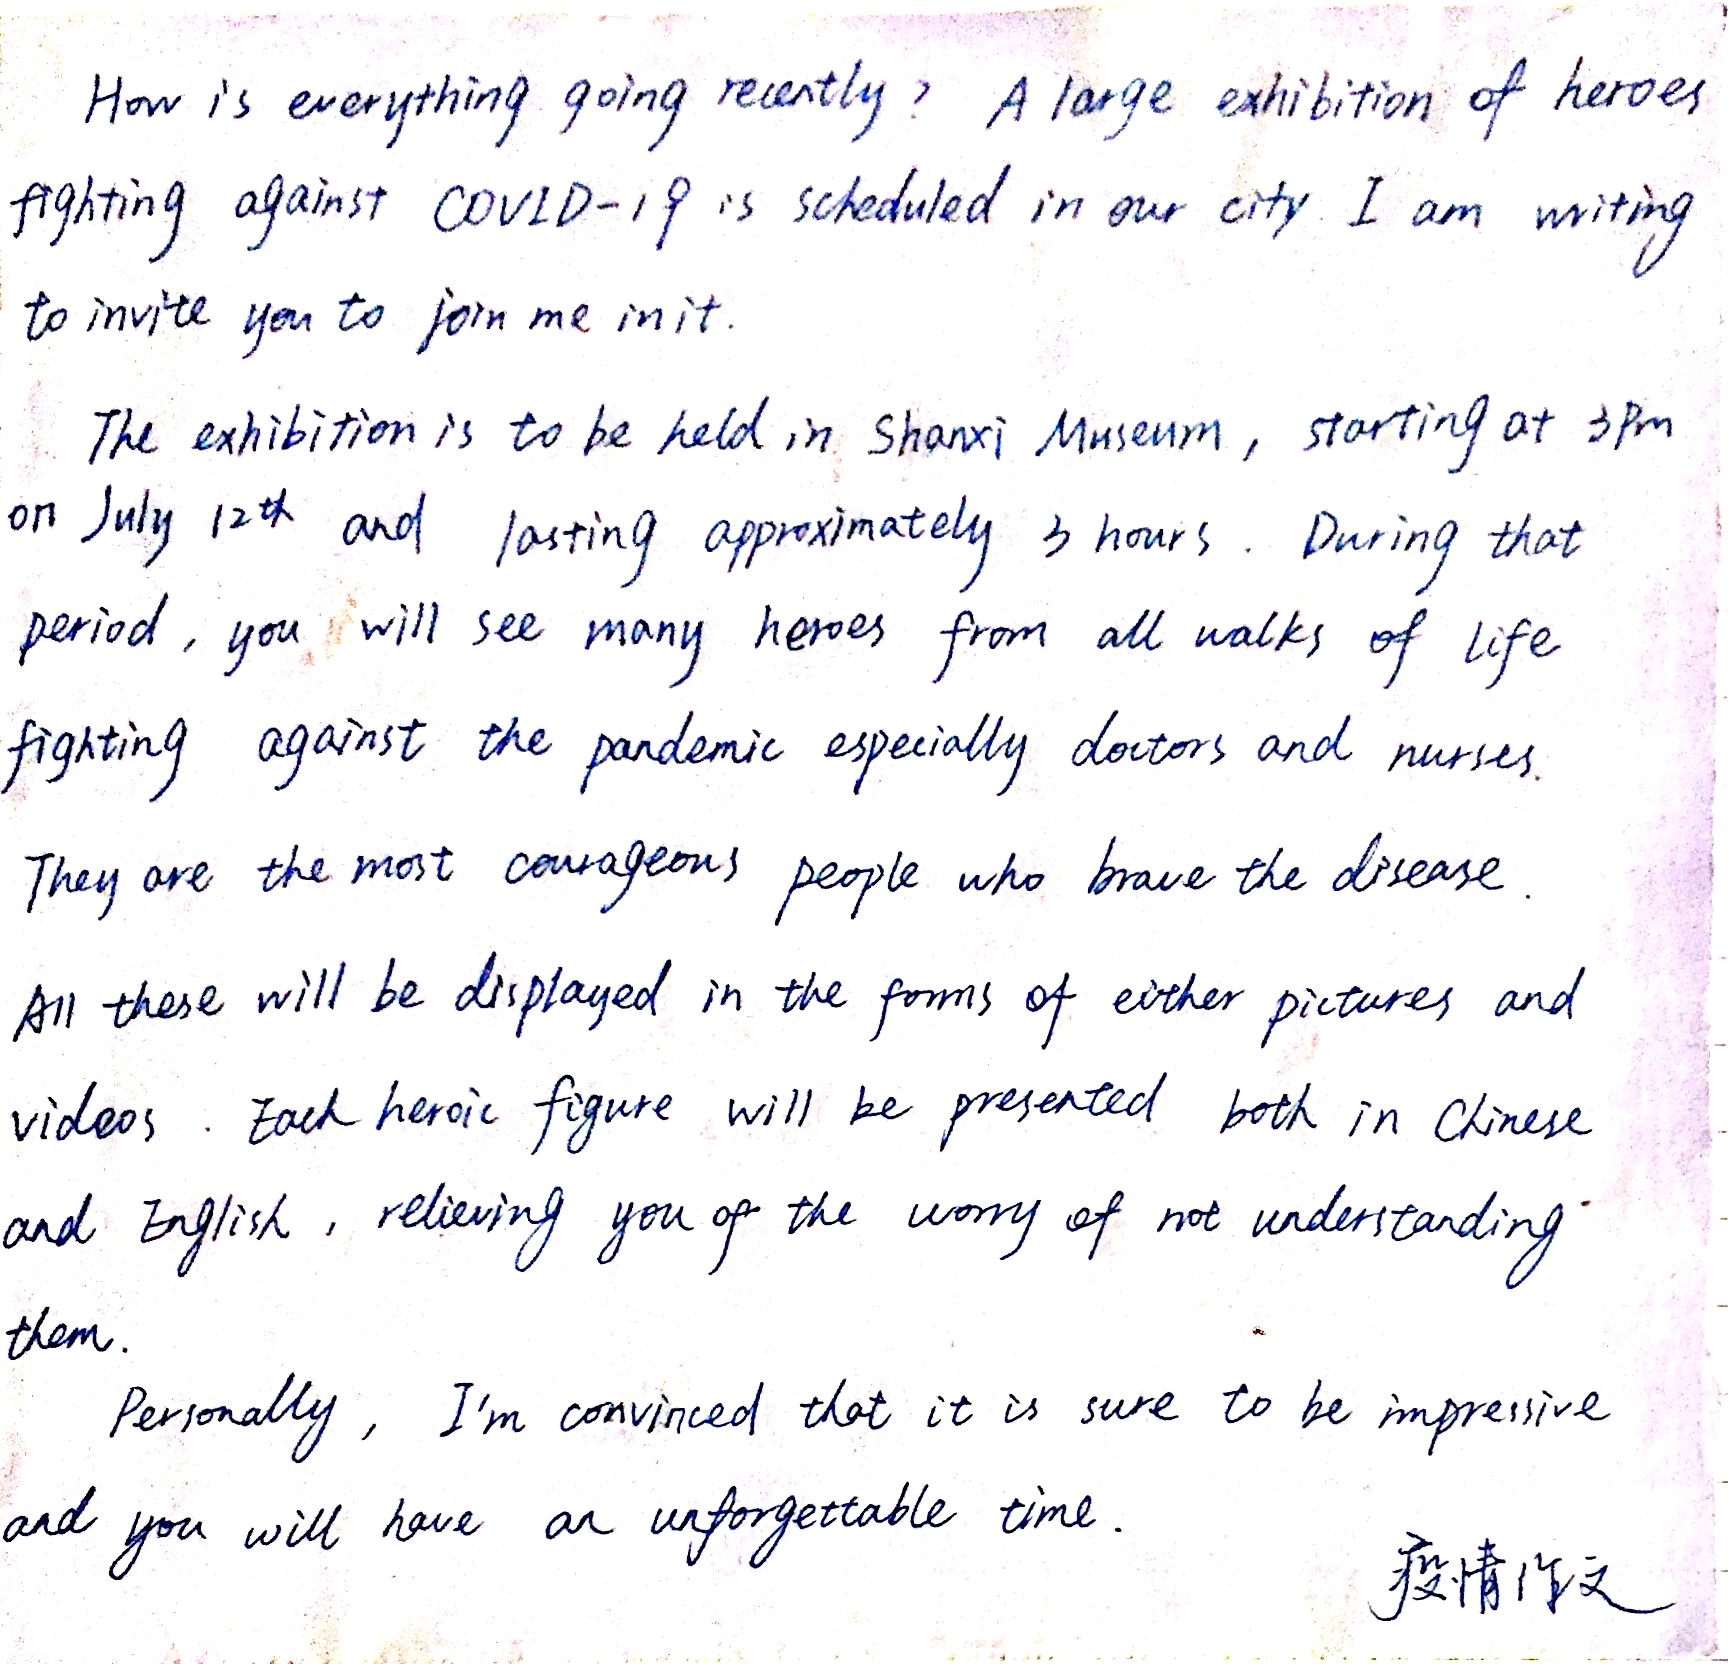 How is everything going recently? A large exhibition of heroes
fighting against COVID-19 is scheduled in our city. I am writing
to invite you to join me in it.
The exhibition is to be held in Shanxi Museum, starting at 3pm
on July 12th and lasting approximately 3 hours. During that
period, you will see many heroes from all walks of life
fighting against the pandemic especially doctors and nurses.
They are the most courageous people who brave the disease.
All these will be displayed in the forms of either pictures and
videos. Each heroic figure will be presented both in Chinese
and English, relieving you of the worry of not understanding
them.
Personally, I'm convinced that it is sure to be impressive
and you will have an unforgettable time.
疫情作文